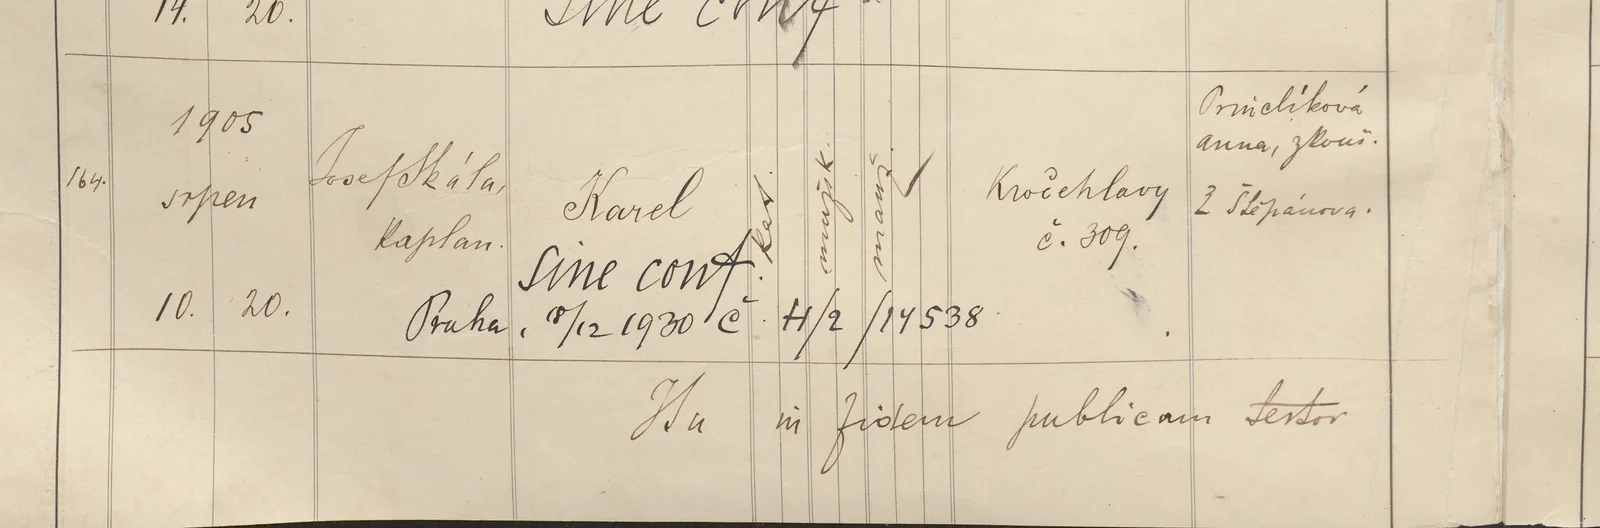 14. 20. sine conf
1905
164. srpen
10. 20.
Josef Skála,
kaplan.
Karel
sine conf.
Praha, 8/12 1930 č. H/2/14538
kat.
mužsk.
manž.
Kročehlavy
č. 309.
anna, zkouš.
z Štěpánova.
Ita in fidem publicam testor